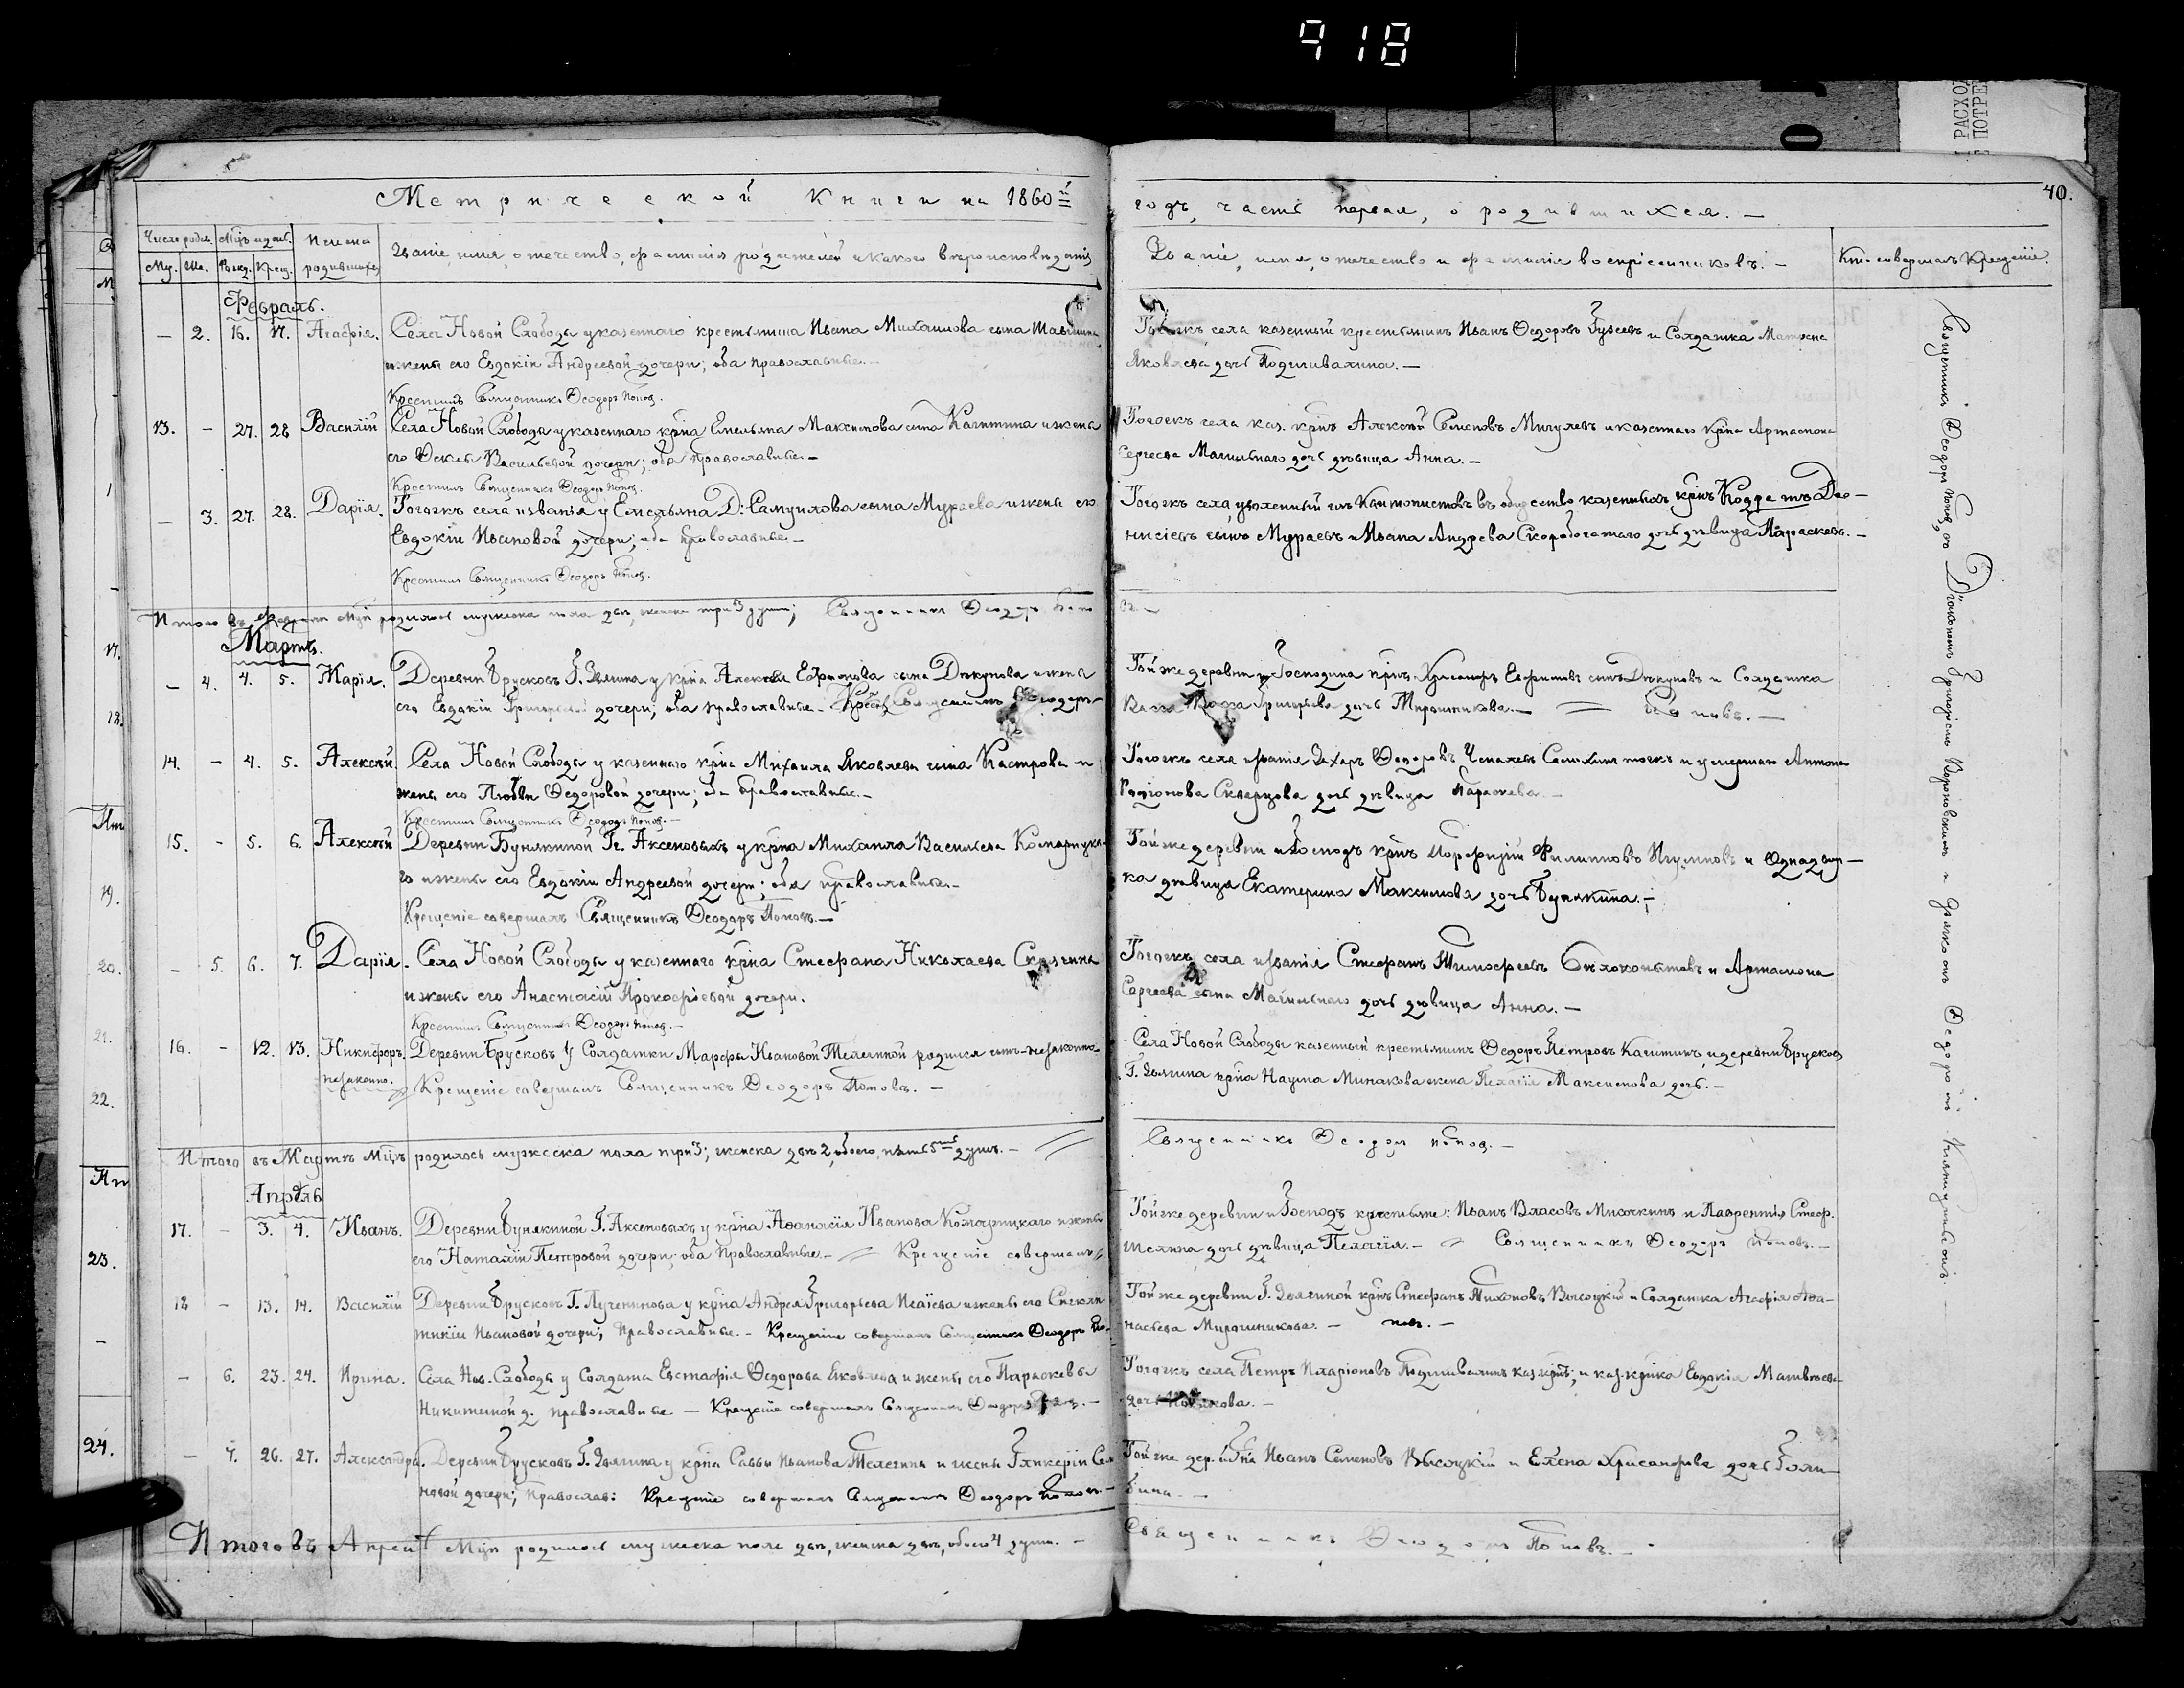 918
РАСХО
ПОТРЕ
40.
Метрической Книги на 1860й
годъ, часть первая, о родившихся. —
Число родив. Мцъ и день. Имена
Му. Же. Рожд. Крещ. родившихся
Званіе, имя, отчество, фамилія родителей и какого вѣроисповѣданія
Званіе, имя, отчество и фамилія воспріемниковъ. —
Кто совершалъ Крещеніе.
Февраль.
— 2. 16. 17. Агафія. Села Новой Слободы у казеннаго крестьянина Ивана Михаилова сына
и жены его Евдокіи Андреевой дочери; оба православные. —
Крестилъ Священникъ Ѳеодоръ Попов.
Тогожъ села казенный крестьянинъ Иванъ Ѳедоровъ Гузеевъ и Солдатка Матрона
Яковлева дочь Подшивалина. —
13. — 27. 28 Василій Села Новой Слободы у казеннаго крна Емельяна Максимова сына Кагитина и жены
его Ѳеклы Васильевой дочери; оба православные. —
Крестилъ Священникъ Ѳеодоръ Попов.
Тогожъ села каз. крнъ Алексѣй Семеновъ Мигулевъ и казеннаго крна Артамона
Сергеева Магильнаго дочь дѣвица Анна. —
— 3. 27. 28. Дарія. Тогожъ села и званія у Емельяна Д: Самуилова сына Мураева и жены его
Евдокіи Ивановой дочери; оба православные. —
Крестилъ Священникъ Ѳеодоръ Попов.
Тогожъ села уволенный изъ Кантонистовъ въ общество казенныхъ крнъ Кодратъ Део-
нисіевъ сынъ Мураевъ и Ивана Андреева Скоробогатаго дочь дѣвица Параскева. —
Итого въ Февралѣ Мцѣ родилось мужеска пола два, женска три 3 души; Священникъ Ѳеодоръ Попо
въ. —
Мартъ.
— 4. 4. 5. Марія. Деревни Брусковъ Г. Зыкина у крна Алексѣя Ефимова сына Дѣкунова и жены
его Евдокіи Григорьевой дочери; оба православные. — Крест. Священникъ Ѳеодоръ
Той же деревни и Господина крнъ Хрисанфъ Евфимовъ сынъ Дѣкуновъ и Солдатка
Григорьева дочь Мирошникова. — Поповъ. —
14. — 4. 5. Алексѣй. Села Новой Слободы у казеннаго крна Михаила Яковлева сына Кастрова и
жены его Любви Ѳедоровой дочери; оба православные. —
Крестилъ Священникъ Ѳеодоръ Попов. —
Тогожъ села и званія Захаръ Ѳедоровъ и умершаго Антона
Родіонова Скверцова дочь дѣвица Параскева. —
15. — 5. 6. Алексѣй Деревни Бунякиной Гг. Аксеновыхъ у крна Михаила Васильева Комарицка-
го и жены его Евдокіи Андреевой дочери; оба православные. —
Крещеніе совершалъ Священникъ Ѳеодоръ Поповъ. —
Той же деревни и Господъ крнъ Порфирій Филипповъ Игумновъ и Однодвор-
ка дѣвица Екатерина Максимова дочь Бунякина. —
— 5. 6. 7. Дарія. Села Новой Слободы у казеннаго крна Стефана Николаева
и жены его Анастасіи Прокофіевой дочери.
Крестилъ Священникъ Ѳеодоръ Попов. —
Тогожъ села и званія Стефанъ Тимофеевъ Бѣлокопытовъ и Артамона
Сергеева сына Магильнаго дочь дѣвица Анна. —
16. — 12. 13. Никифоръ. Деревни Брусковъ У Солдатки Марфы Ивановой Телегиной родился сынъ незаконно
незаконно. Крещеніе совершалъ Священникъ Ѳеодоръ Поповъ. —
Села Новой Слободы казенный крестьянинъ Ѳедоръ Петровъ Кагитинъ, и деревни Брусковъ
Г. Зыкина крна Наума Минакова жена Пелагія Максимова дочь. —
Итого въ Мартѣ Мцѣ родилось мужеска пола три 3; женска два 2, обоего пять 5 душъ. —
Священникъ Ѳеодоръ Попов. —
Апрѣль
17. — 3. 4. Иванъ. Деревни Бунякиной Г. Аксеновыхъ у крна Аѳанасія Иванова Комарицкаго и жены
его Наталіи Петровой дочери; оба Православные. — Крещеніе совершалъ
Той же деревни и Господъ крестьяне: Иванъ Власовъ Мисочкинъ и Лаврентія Стеф.
дочь дѣвица Пелагія. — Священникъ Ѳеодоръ Поповъ. —
18 — 13. 14. Василій Деревни Брусковъ Г. Лученинова у крна Андрея Григорьева Исаіева и жены его
Ивановой дочери; Православные. — Крещеніе совершалъ Священникъ Ѳеодоръ По-
Той же деревни Г. Зыкиной крнъ Стефанъ Тихоновъ Высоцкій и Солдатка Агафія Аѳа-
насьева Мирошникова. — повъ. —
— 6. 23. 24. Ирина. Села Нов. Слободы у Солдата Евстафія Ѳедорова Яковлева и жены его Параскевы
Никитиной д. православные — Крещеніе совершалъ Священникъ Ѳеодоръ
Тогожъ села Петръ Иларіоновъ Подшивалинъ каз. крнъ; и каз. крнка Евдокія Матвѣева
дочь
— 7. 26. 27. Александра. Деревни Брусковъ Г. Зыкина у крна Саввы Иванова Телегина и жены Гликеріи Сем
новой дочери; Православ: Крещеніе совершалъ Священникъ Ѳеодоръ Поповъ. —
Той же дер. и Гна Иванъ Семеновъ Высоцкій и Елена Хрисанфова дочь Голи-
бина. —
Итого въ Апрелѣ Мцѣ родилось мужеска пола два, женска два, обоего 4 души. —
Священникъ Ѳеодоръ Поповъ. —
Священникъ Ѳеодоръ Попов, съ Діакономъ Григоріемъ Вороновскимъ и Дьячкомъ Ѳеодоромъ
17.
18.
19.
20.
21.
22.
23.
24.